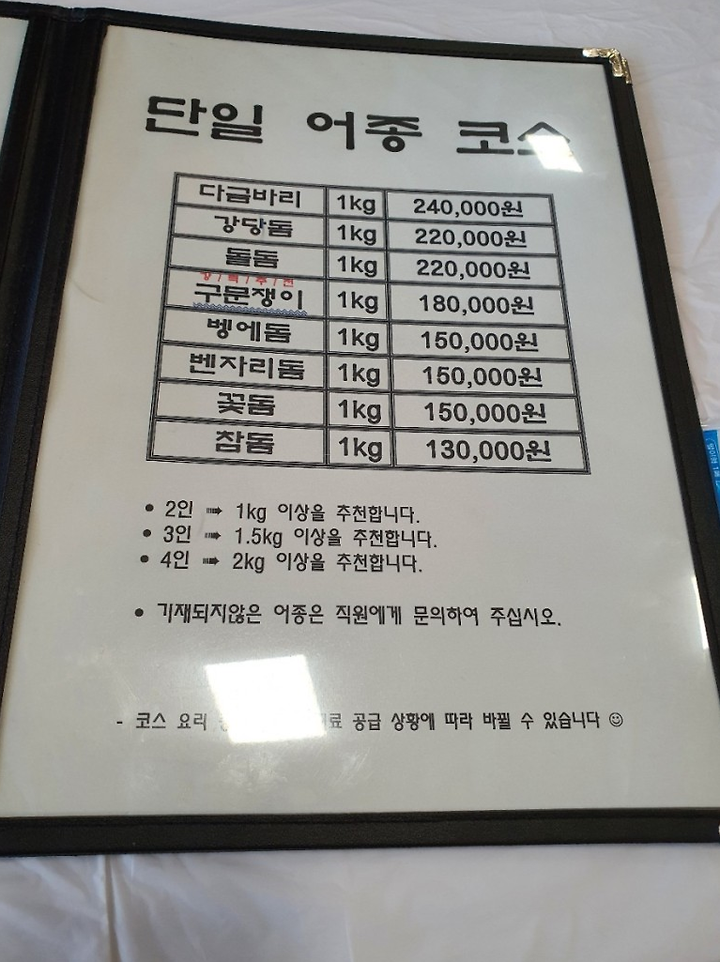 단일 어종 코스
다금바리 1kg 240,000원
강당돔 1kg 220,000원
돌돔 1kg 220,000원
강/력/추/천
구문쟁이 1kg 180,000원
벵에돔 1kg 150,000원
벤자리돔 1kg 150,000원
꽃돔 1kg 150,000원
참돔 1kg 130,000원
• 2인 ➠ 1kg 이상을 추천합니다.
• 3인 ➠ 1.5kg 이상을 추천합니다.
• 4인 ➠ 2kg 이상을 추천합니다.
• 기재되지않은 어종은 직원에게 문의하여 주십시오.
- 코스 요리 공급 상황에 따라 바뀔 수 있습니다 ☺